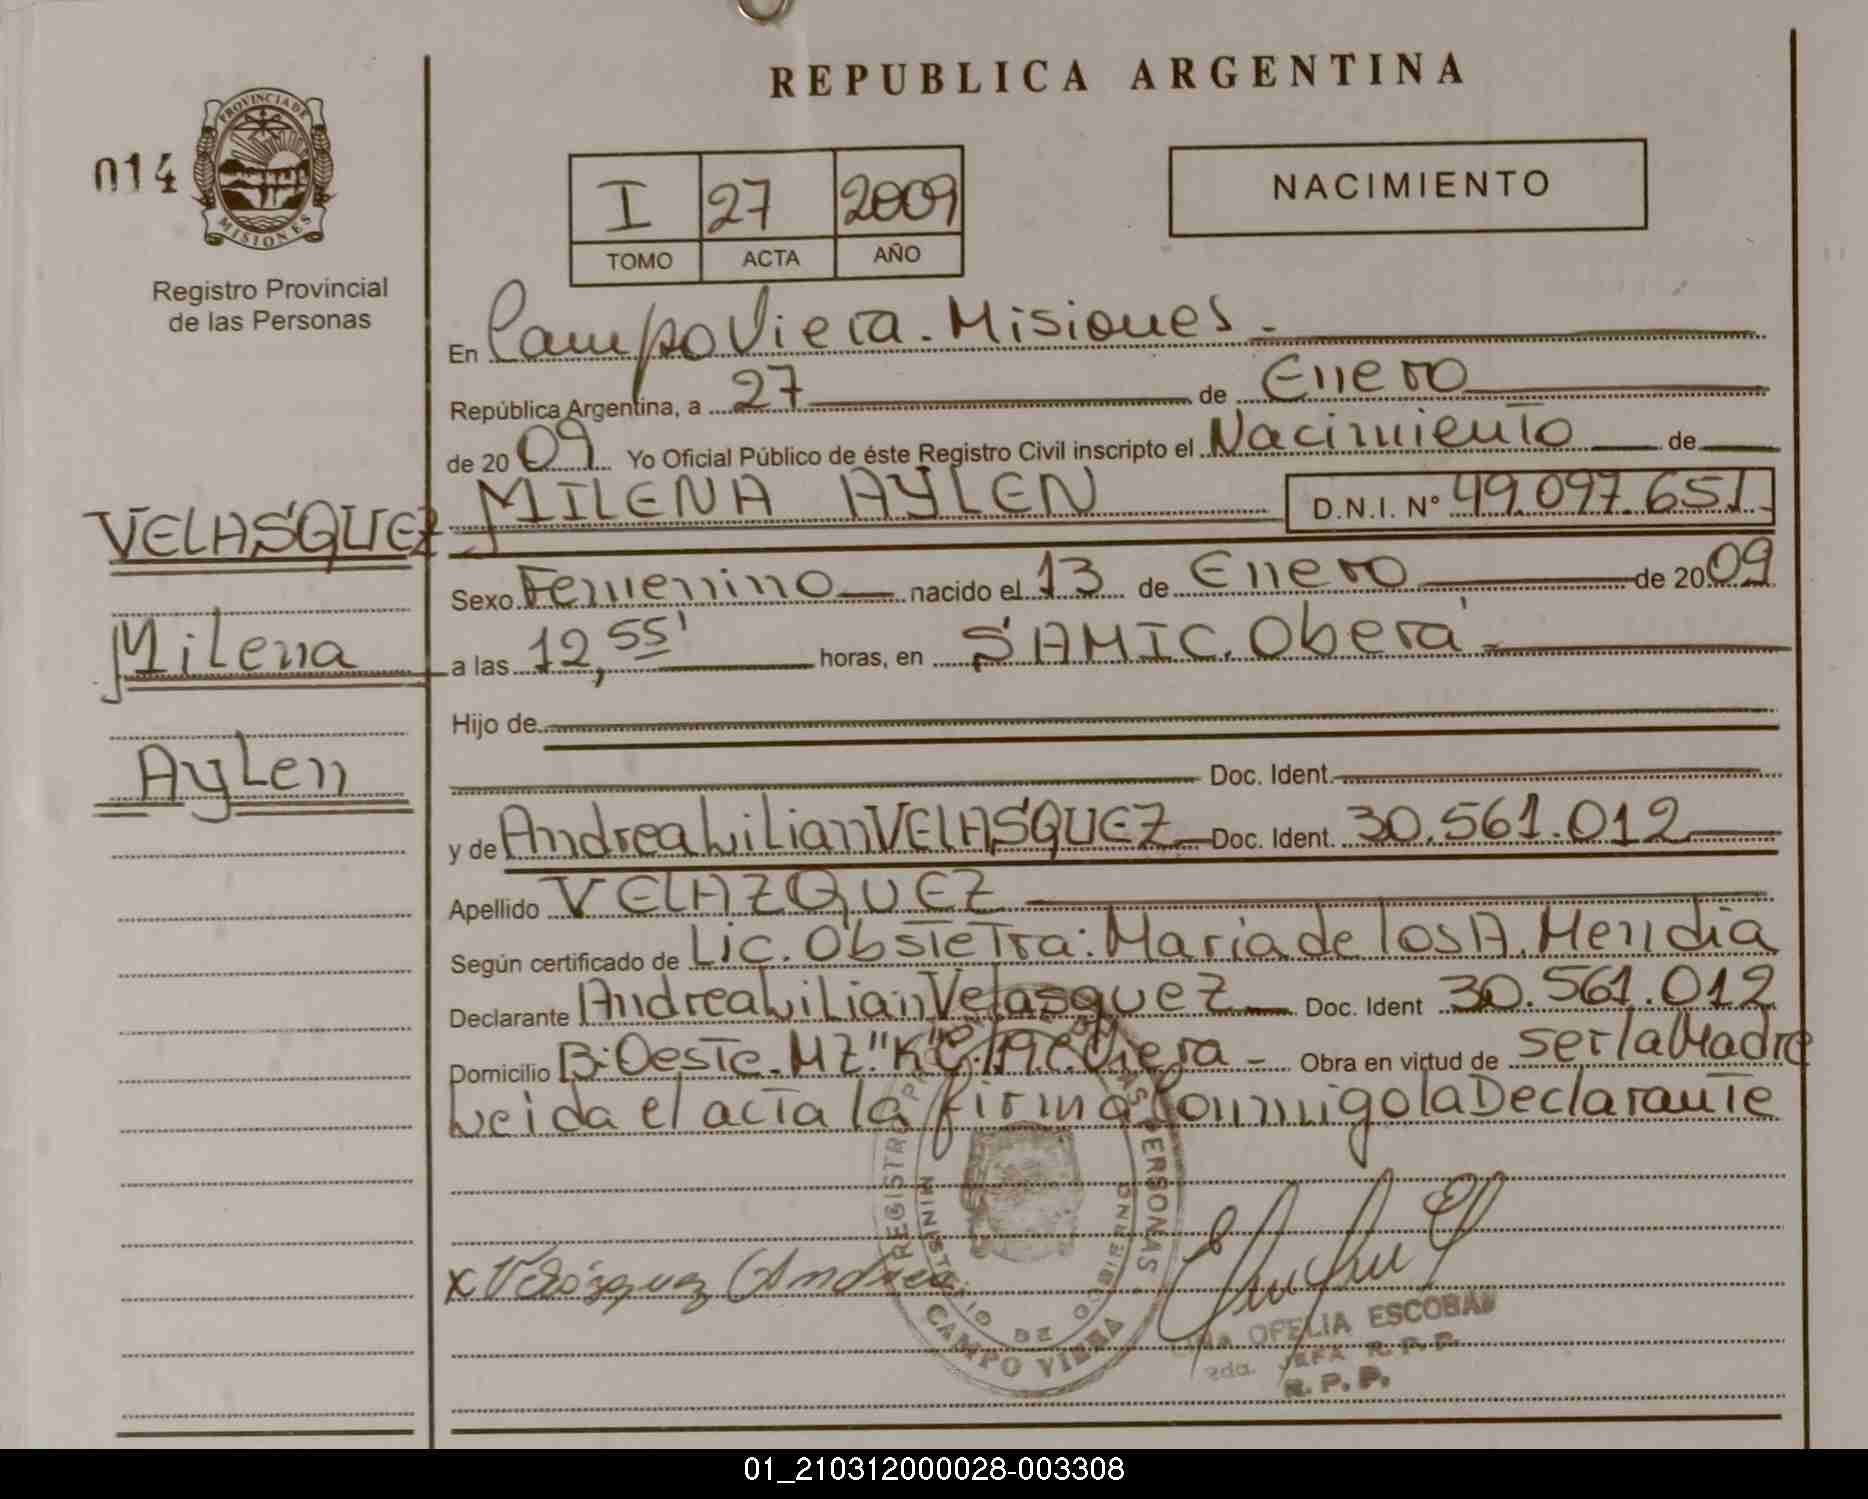 REPUBLICA ARGENTINA
014
PROVINCIA DE
MISIONES
Registro Provincial
de las Personas
I 27 2009
TOMO ACTA AÑO
NACIMIENTO
En Campo Viera. Misiones.
República Argentina, a 27 de Enero
de 2009 Yo Oficial Público de éste Registro Civil inscripto el Nacimiento de
VELASQUEZ
MILENA AYLEN D.N.I. N° 49.097.651
Sexo Femenino nacido el 13 de Enero de 2009
Milena
a las 12,55' horas, en SAMIC. Oberá
Hijo de
Aylen
Doc. Ident.
y de Andrea Lilian VELASQUEZ Doc. Ident. 30.561.012
Apellido VELAZQUEZ
Según certificado de Lic. Obstetra: Maria de los A. Mendia
Declarante Andrea Lilian Velasquez Doc. Ident 30.561.012
Domicilio B: Oeste. MZ "K" Viera - Obra en virtud de ser la Madre
Leida el acta la firma Conmigo la Declarante
x Velásquez Andrea
REGISTR PERSONAS
MINISTERIO DE GOBIERNO
CAMPO VIERA
OFELIA ESCOBAR
2da. JEFA R.P.P.
R.P.P.
01_210312000028-003308